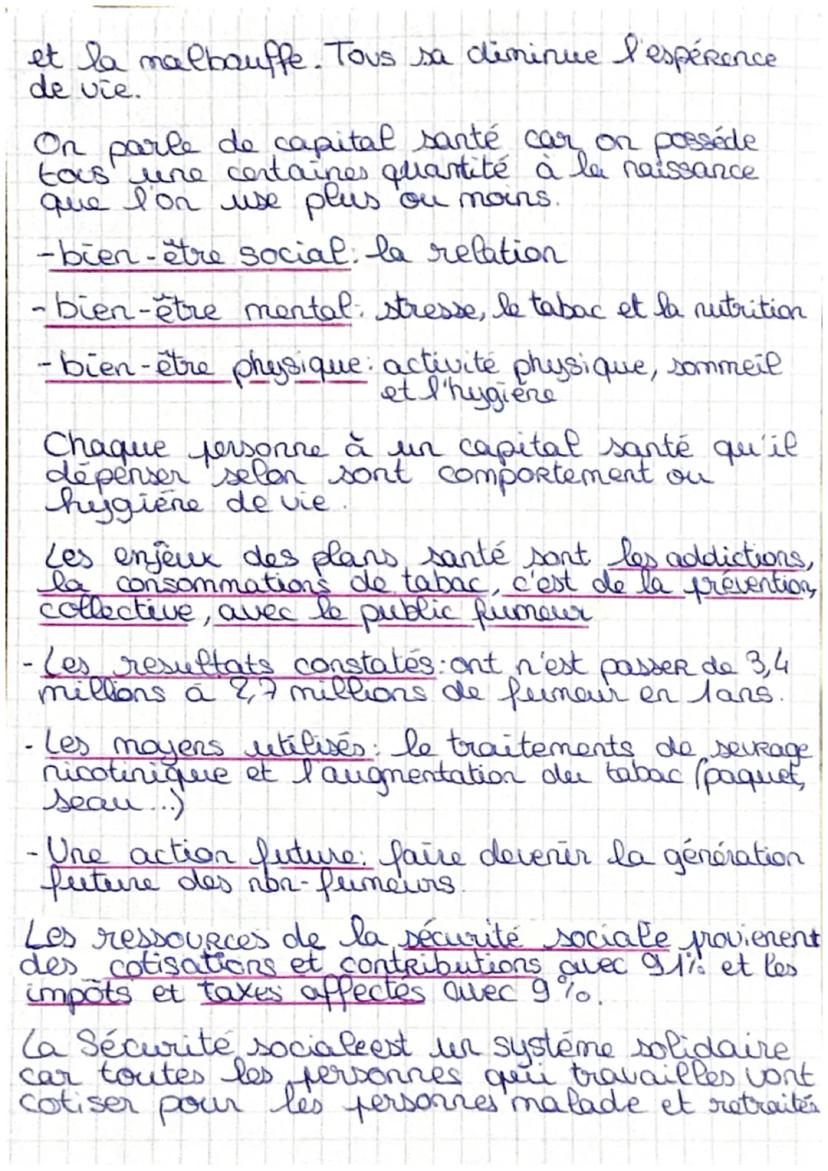 et la malbouffe. Tous sa diminue l'espérance
de vie.
On parle de capital santé car on posséde
tous une certaines quantité à la naissance
que l'on use plus ou moins.
-bien-être social: la relation
-bien-être mental: stresse, le tabac et la nutrition
-bien-être physique: activité physique, sommeil
et l'hygiène
Chaque personne à un capital santé qu'il
dépenser selon sont comportement ou
hygiène de vie.
Les enjeux des plans santé sont les addictions,
la consommations de tabac, c'est de la prévention,
collective, avec le public fumeur
-Les resultats constatés: ont n'est passer de 3,4
millions à 2,7 millions de fumeur en 1ans.
-Les moyens utilisés: le traitements de sevrage
nicotinique et l'augmentation du tabac (paquet,
seau...)
-Une action future: faire devenir la génération
future des non-fumeurs.
Les ressources de la sécurité sociale provienent
des cotisations et contributions avec 91% et les
impôts et taxes affectés avec 9%.
La Sécurité sociale est un système solidaire
car toutes les personnes qui travailles vont
cotiser pour les personnes malade et retraités